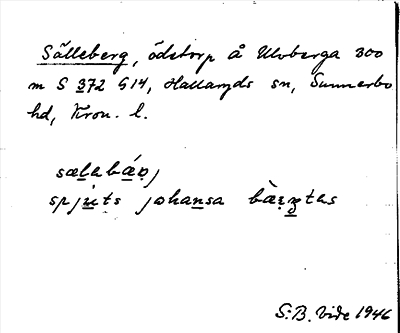 Sälleberg, ödetorp å Ulvberga 300
m S 372 G14, Hallaryds sn, Sunnerbo
hd, Kron. l.
sælabáṛj
spjuts johansa bàṛʒtas
S:B. Vide 1946